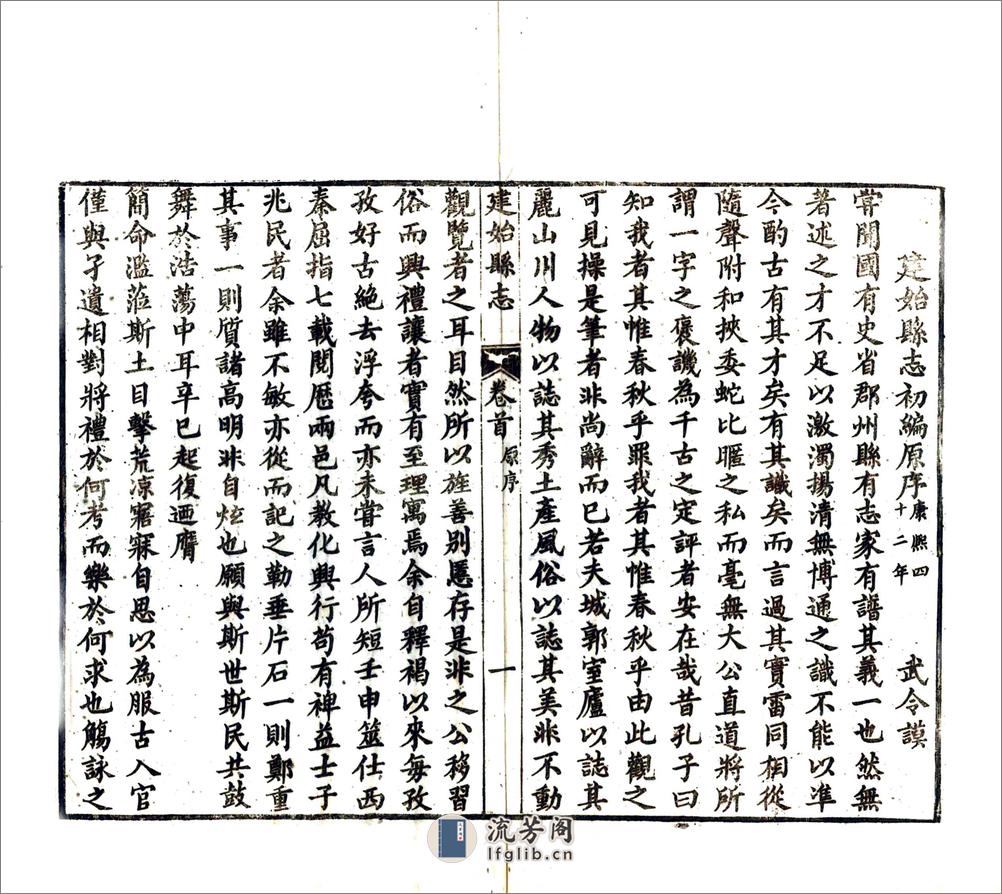 建始縣志初編原序康熙四十二年　武令謨
嘗聞國有史省郡州縣有志家有譜其義一也然無
著述之才不足以激濁揚清無博通之識不能以準
今酌古有其才矣有其識矣而言過其實雷同相從
隨聲附和挾委蛇比暱之私而毫無大公直道將所
謂一字之褒譏為千古之定評者安在哉昔孔子曰
知我者其惟春秋乎罪我者其惟春秋乎由此觀之
可見操是筆者非尚辭而已若夫城郭室廬以誌其
麗山川人物以誌其秀土產風俗以誌其美非不動
建始縣志　卷首　原序　一
觀覽者之耳目然所以旌善別慝存是非之公移習
俗而興禮讓者實有至理寓焉余自釋褐以來每孜
孜好古絶去浮夸而亦未嘗言人所短壬申筮仕西
秦屈指七載閱歷兩邑凡教化興行苟有裨益士子
兆民者余雖不敏亦從而記之勒垂片石一則鄭重
其事一則質諸高明非自炫也願與斯世斯民共鼓
舞於浩蕩中耳辛巳起復迺膺
簡命濫蒞斯土目擊荒凉寤寐自思以為服古入官
僅與孑遺相對將禮於何考而樂於何求也觴詠之
流芳阁
lfglib.cn